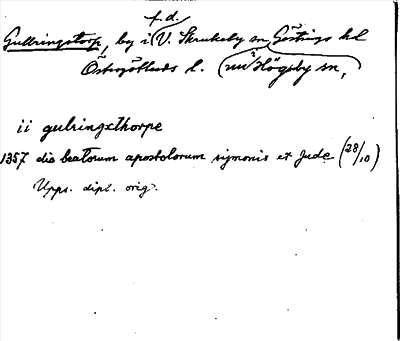 f.d.
Gullringstorp, by i (V. Skrukeby sn Göstrings hd
Östergötlands l. (nu Högby sn,
ii gulringxthorpe
1357 die beatorum apostolorum symonis et Jude (28/10)
Upps. dipl. orig.